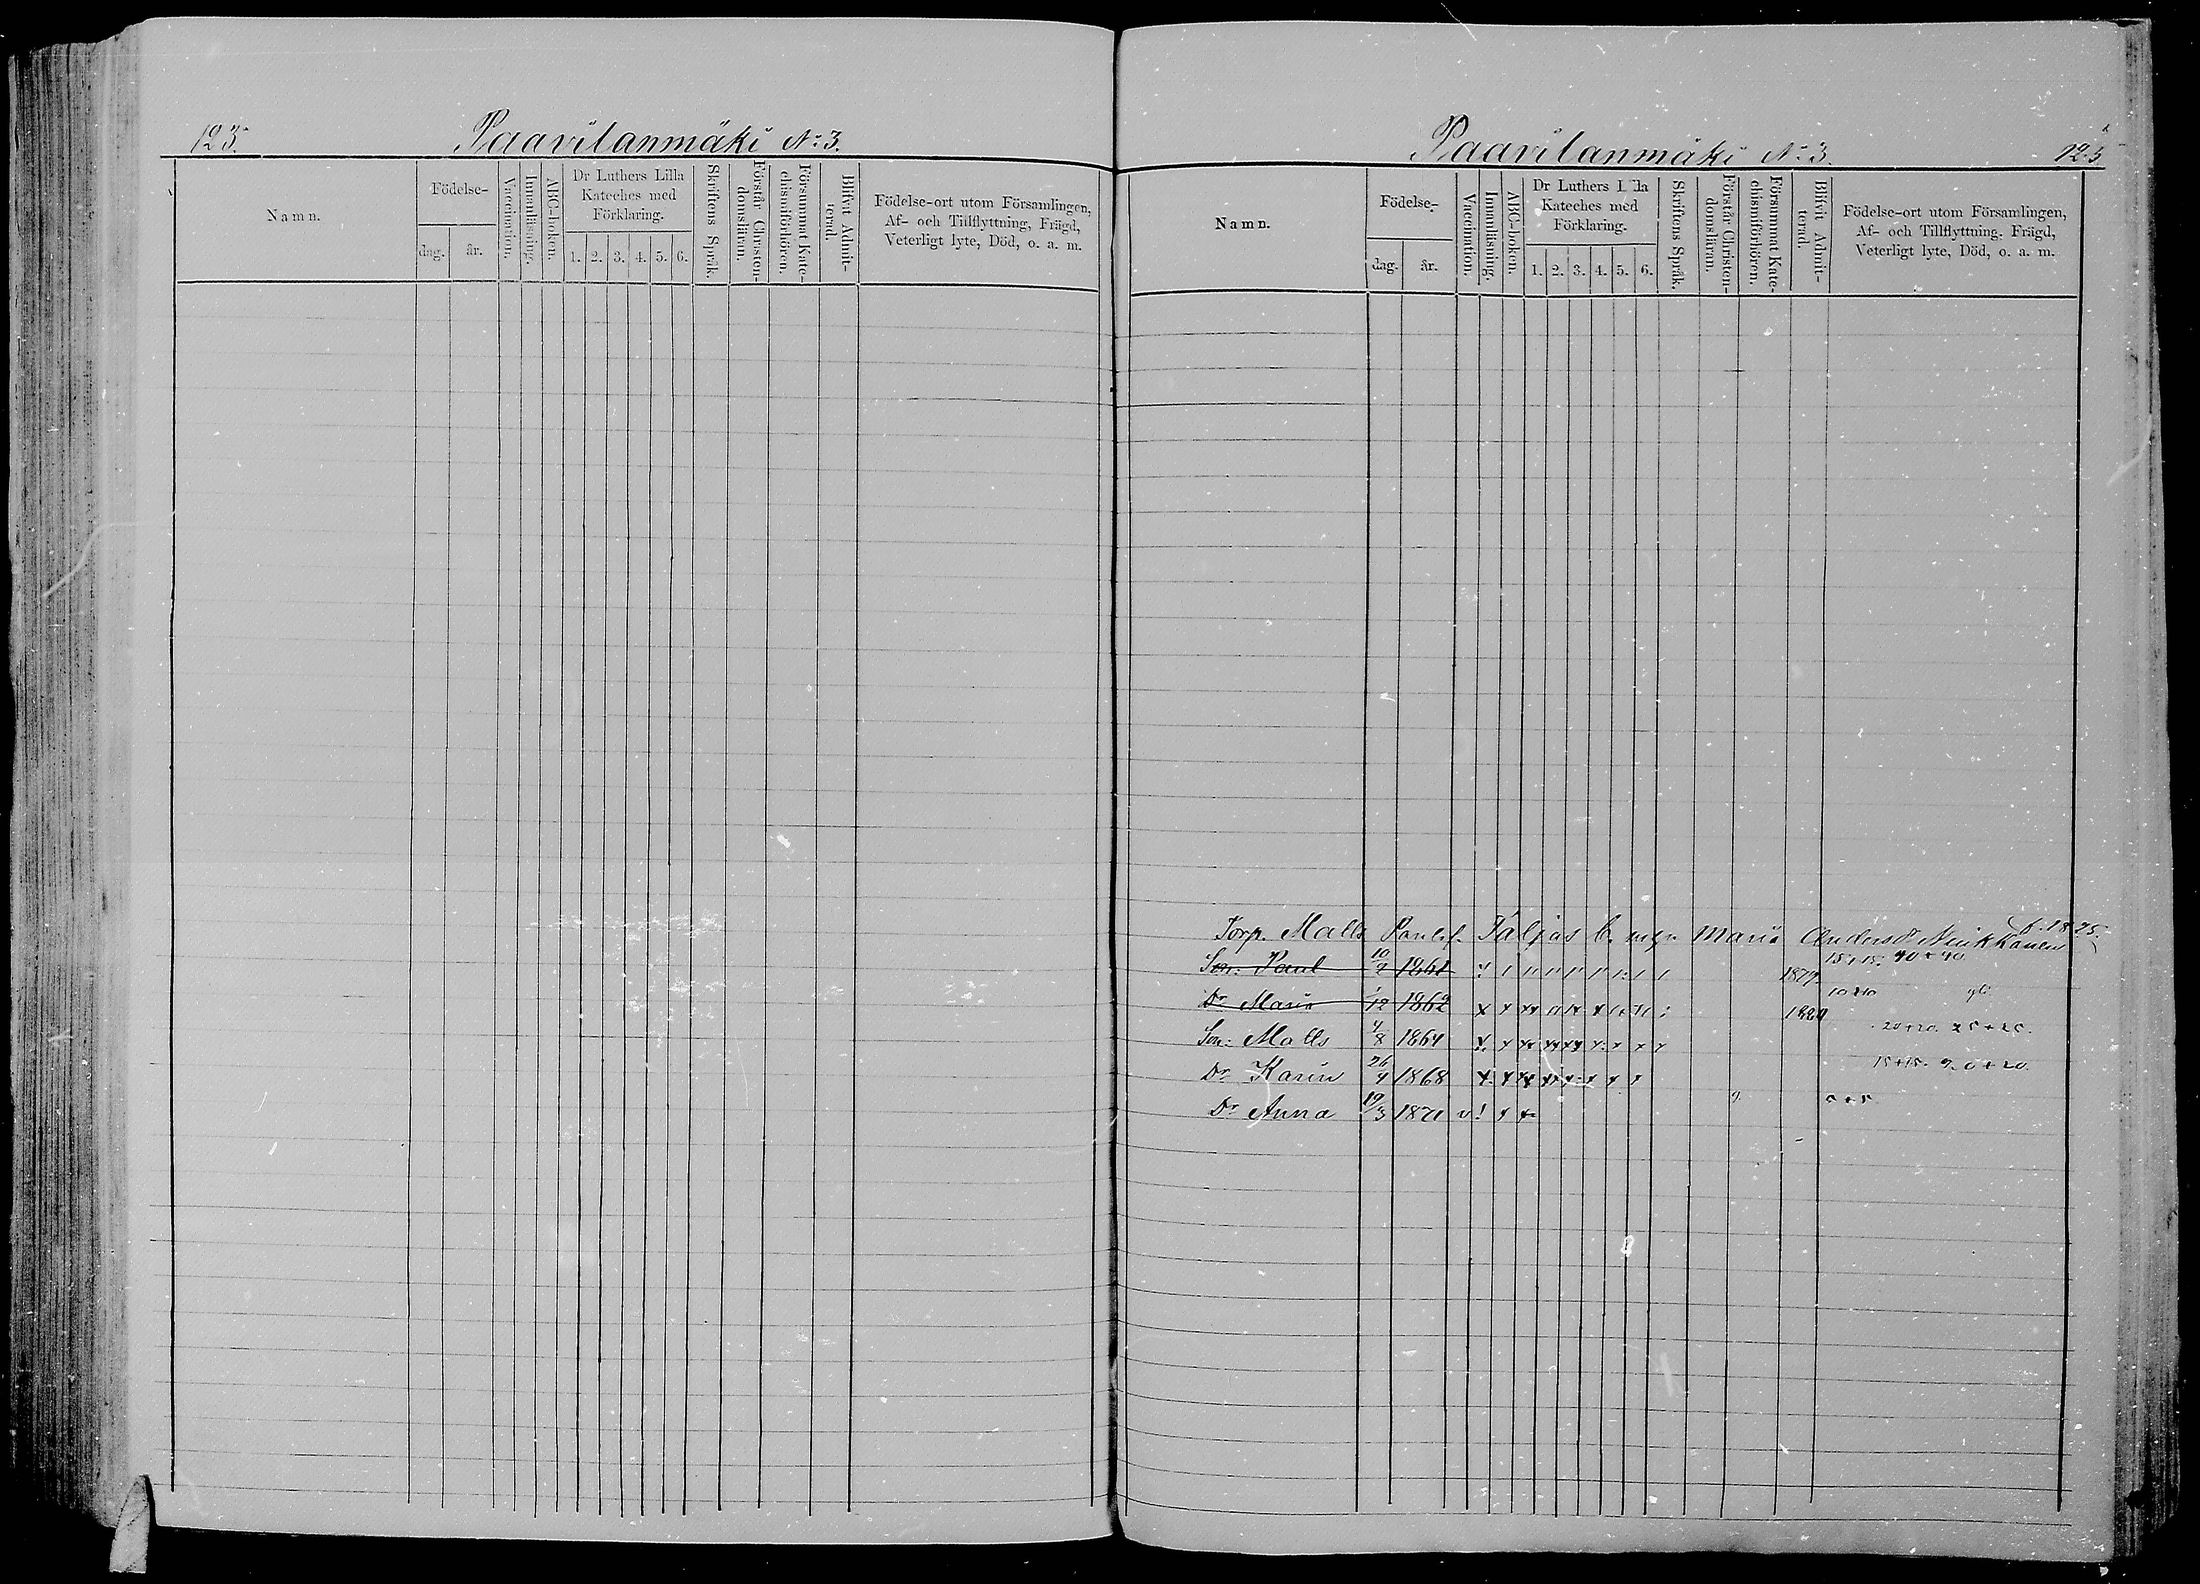 123.
Paavilanmäki No 3.
Namn.
Födelse-
dag.
år.
Vaccination.
Innanläsning.
ABC-boken.
Dr Luthers Lilla
Kateches med
Förklaring.
1. 2. 3. 4. 5. 6.
Skriftens Språk.
Förstår Christen-
domsläran.
Försummat Kate-
chismiförhören.
Blifvit Admit-
terad.
Födelse-ort utom Församlingen,
Af- och Tillflyttning, Frägd,
Veterligt lyte, Död, o. a. m.
Paavilanmäki No 3.
123
Namn.
Födelse-
dag.
år.
Vaccination.
Innanläsning.
ABC-boken.
Dr Luthers Lilla
Kateches med
Förklaring.
1. 2. 3. 4. 5. 6.
Skriftens Språk.
Förstår Christen-
domsläran.
Försummat Kate-
chismiförhören.
Blifvit Admit-
terad.
Födelse-ort utom Församlingen,
Af- och Tillflyttning. Frägd,
Veterligt lyte, Död, o. a. m.
Torp. Matts Paulsf. Taljas Maria Andersdr
Son: Paul 10/2 1861 15+15. 40+40
Dr Maria 1/12 1862 10+10
Son: Matts 4/8 1864 20+20. 25+25.
Dr Karin 26/4 1868 15+15. 20+20.
Dr Anna 19/3 1871 5+5